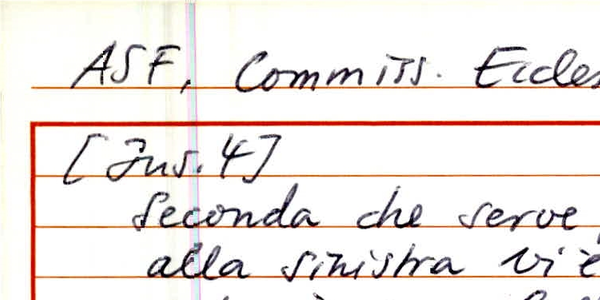 ASF, Commiss. Eccles
[Ins. 4]
Seconda che serve,
alla sinistra vi è